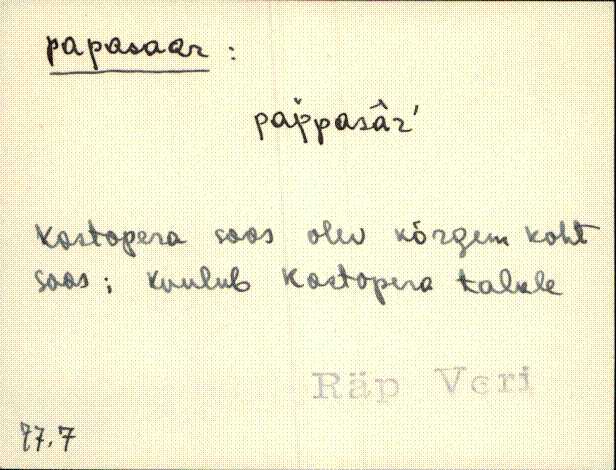 papasaar :
pap̆pasâŕ
Kostopera soos olev kõrgem koht
soos; kuulub Kostopera talule
Räp Veri
77.7